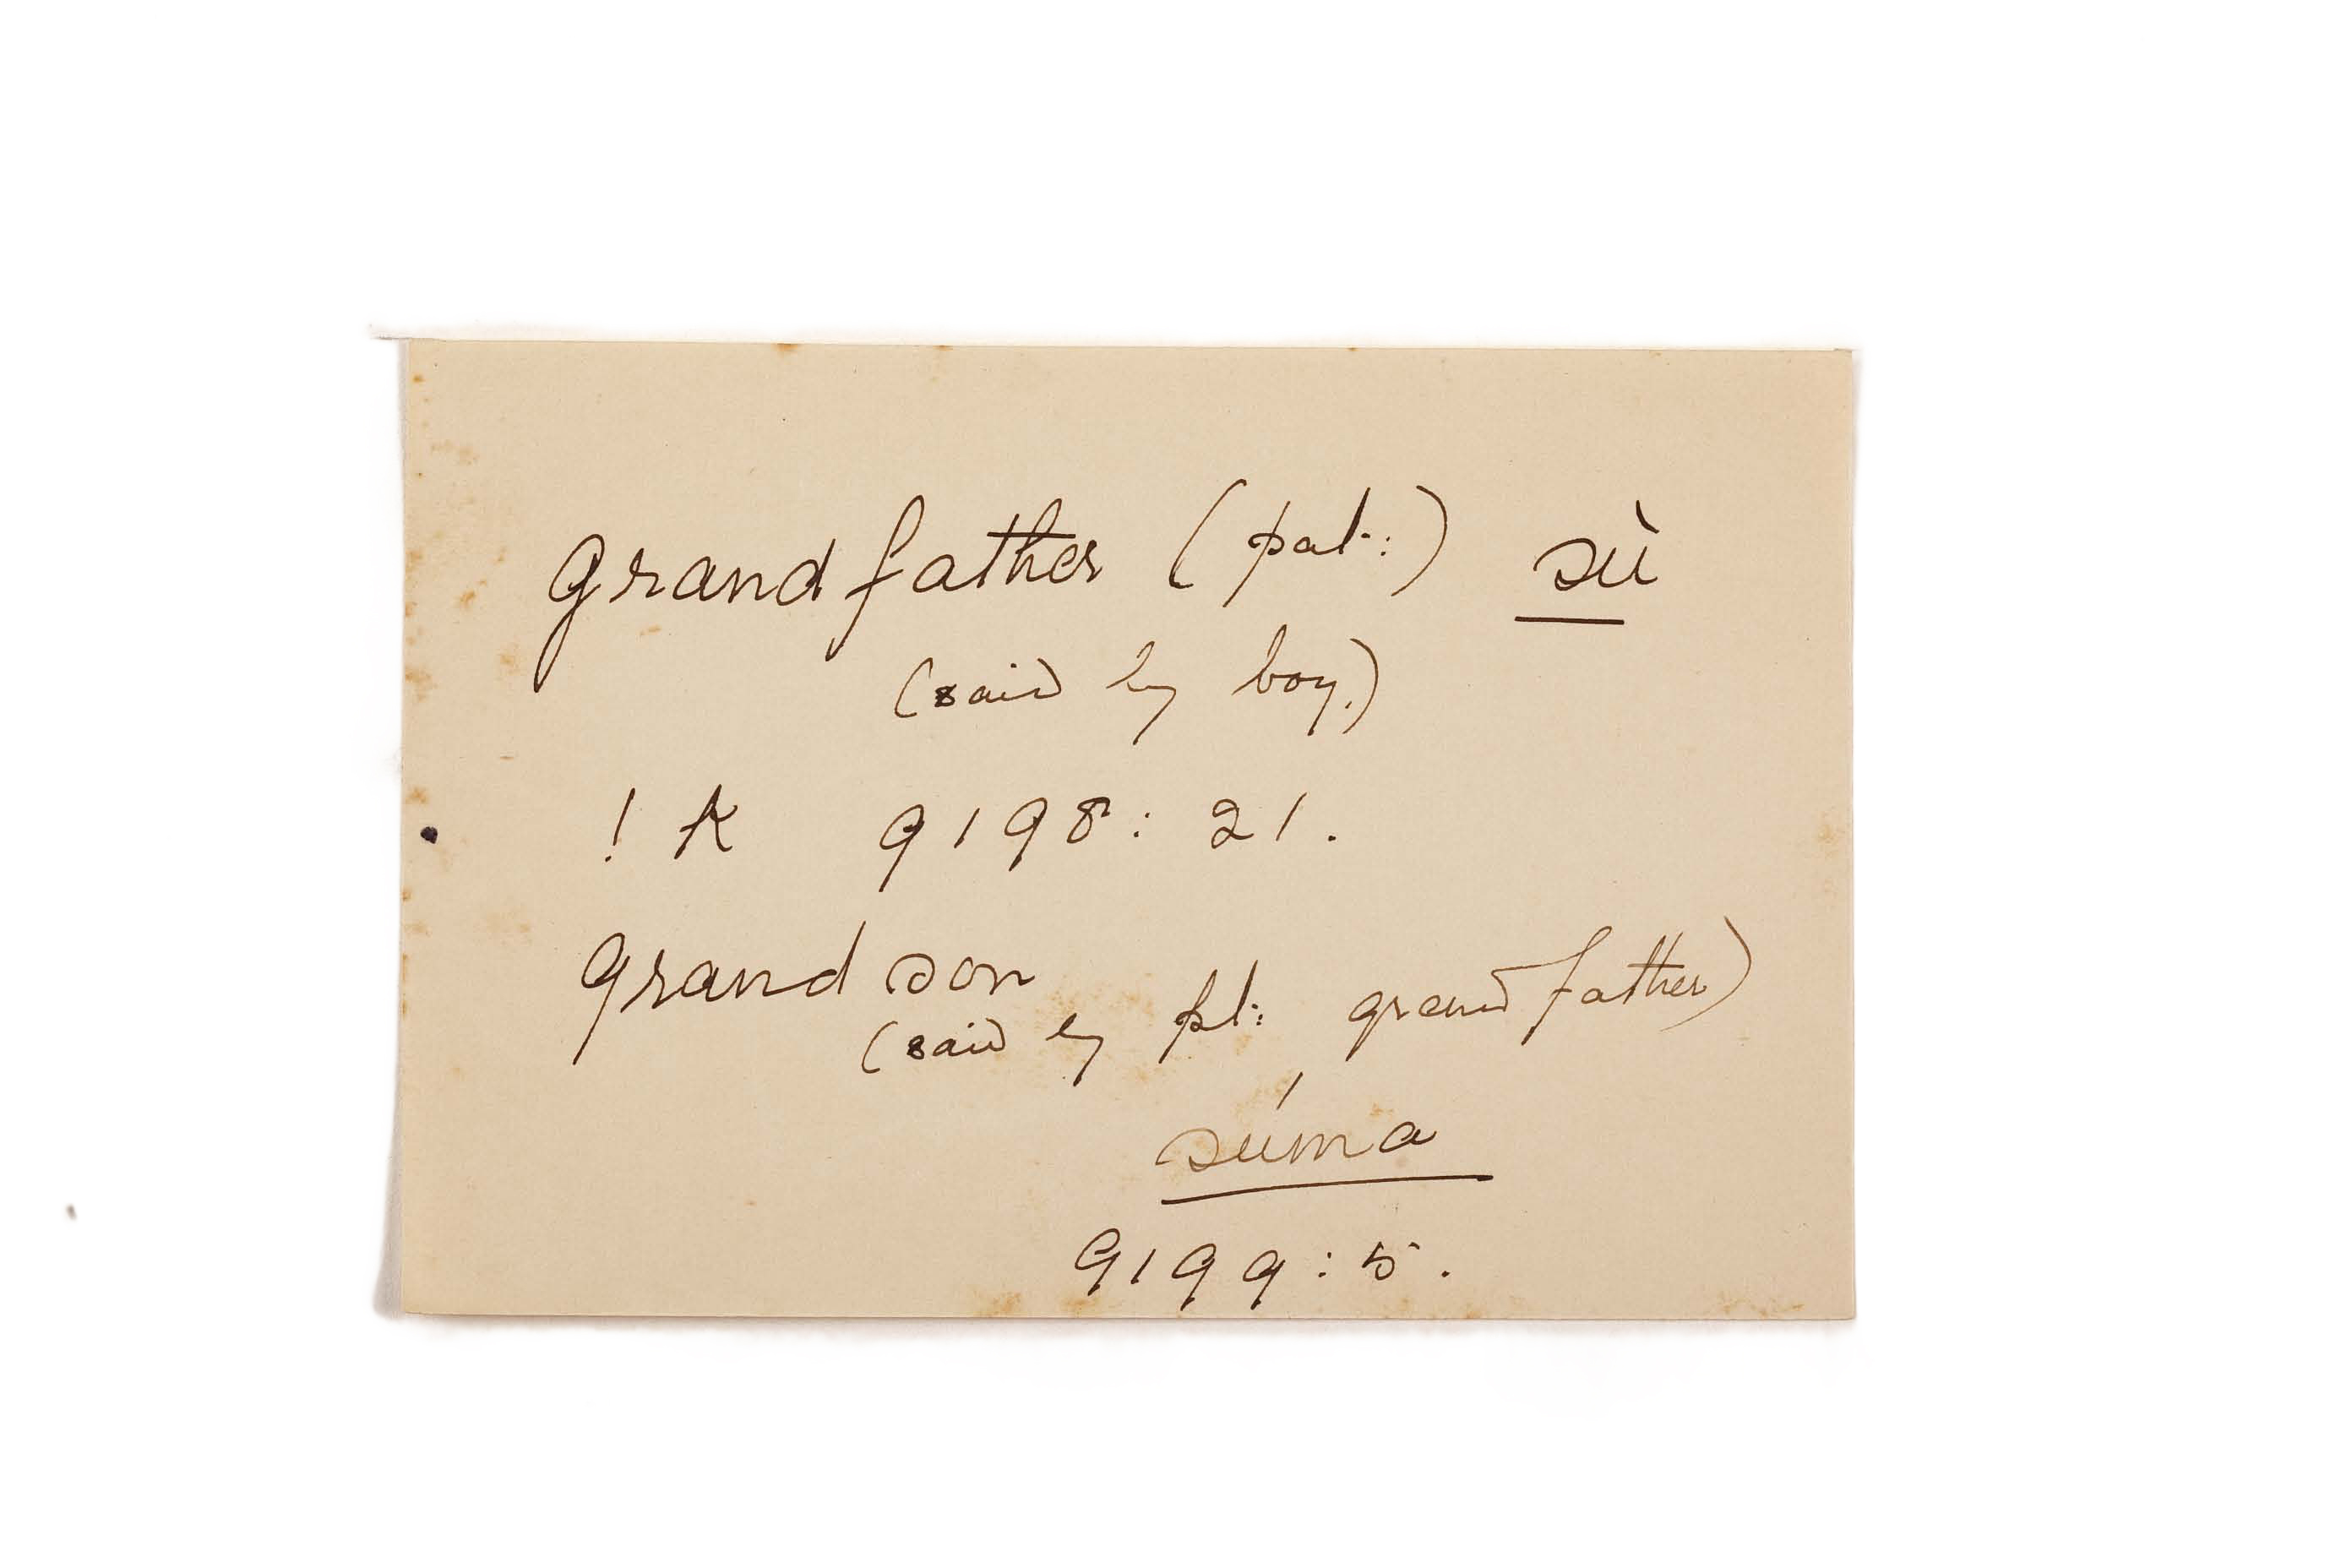 Grandfather (pat:) sù
(said by boy.)
! K 9198: 21.
Grand son
(said by pt: grandfather)
súma
9199: 5.